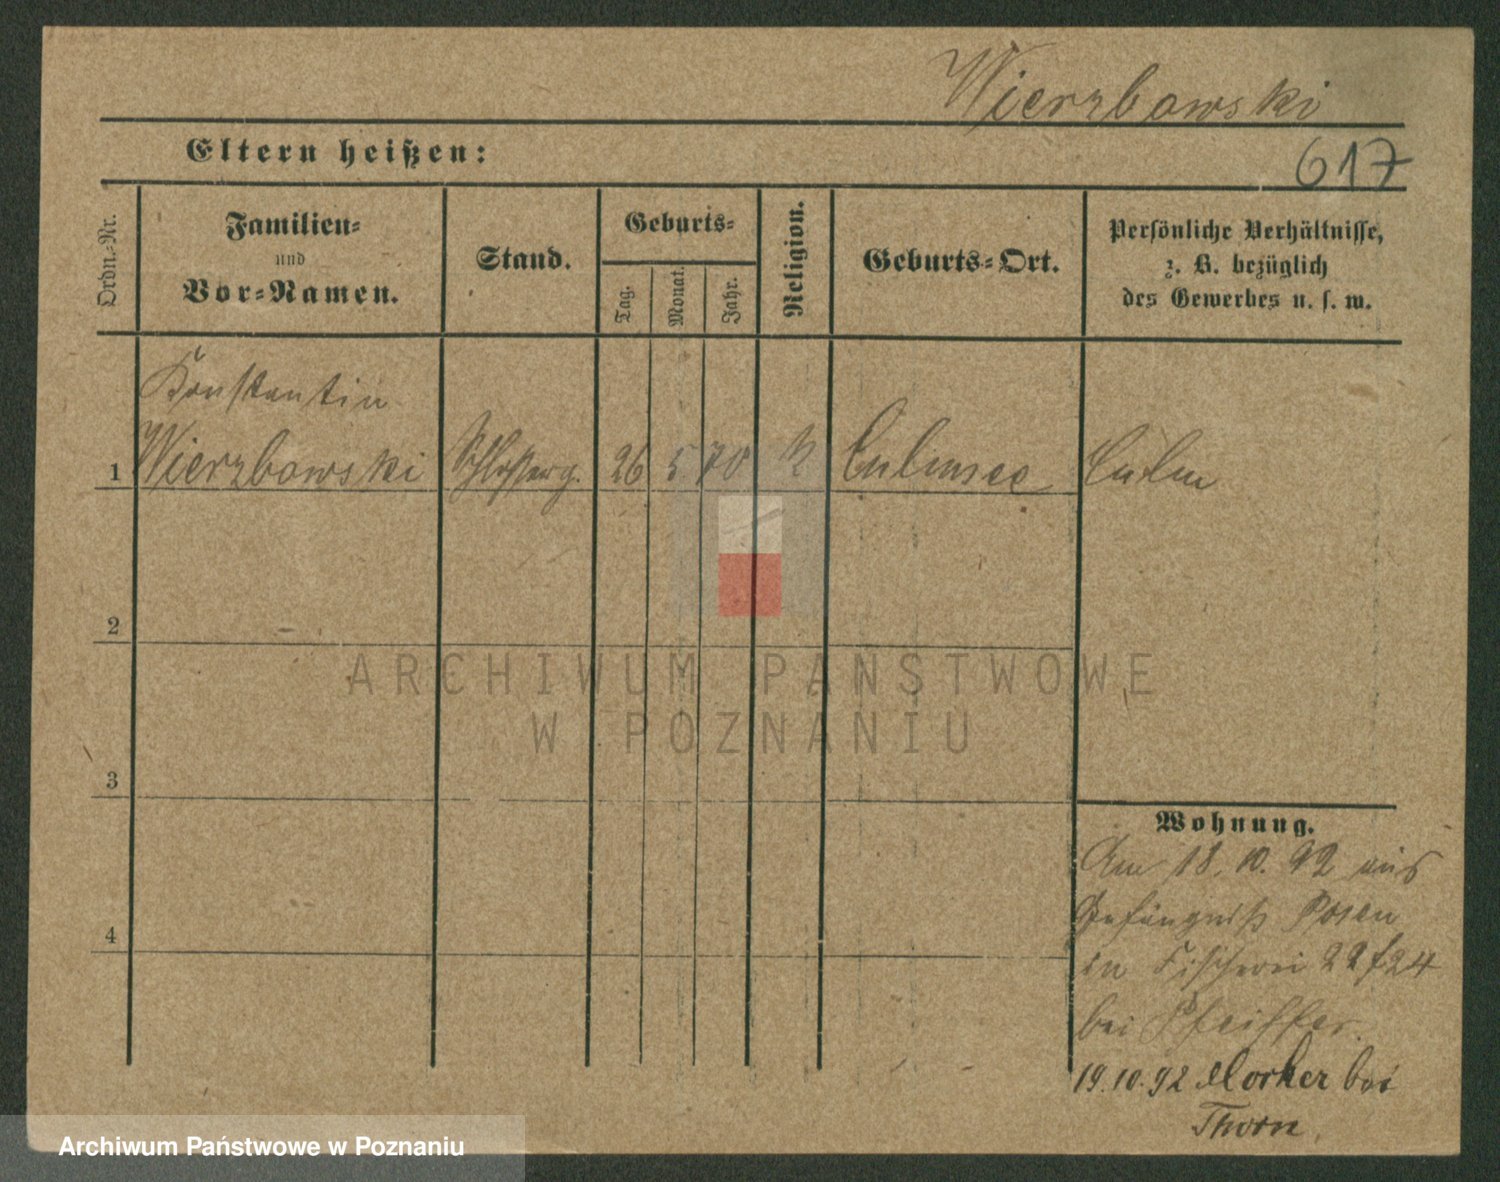 Wierzbowski
Eltern heißen:
617
Ordn.-Nr.
Familien-
und
Vor-Namen.
Stand.
Geburts-
Tag.
Monat.
Jahr.
Religion.
Geburts-Ort.
Persönliche Verhältnisse,
z. B. bezüglich
des Gewerbes u. s. w.
Konstantin
1 Wierzbowski Schlosserg. 26 5 70 k Culmsee Culm
2
3
4
Wohnung.
Am 18.10.92 aus
Gefängniß Posen
in Fischerei 22/24
bei Pfeiffer.
19.10.92 Mocker bei
Thorn.
ARCHIWUM PAŃSTWOWE
W POZNANIU
Archiwum Państwowe w Poznaniu